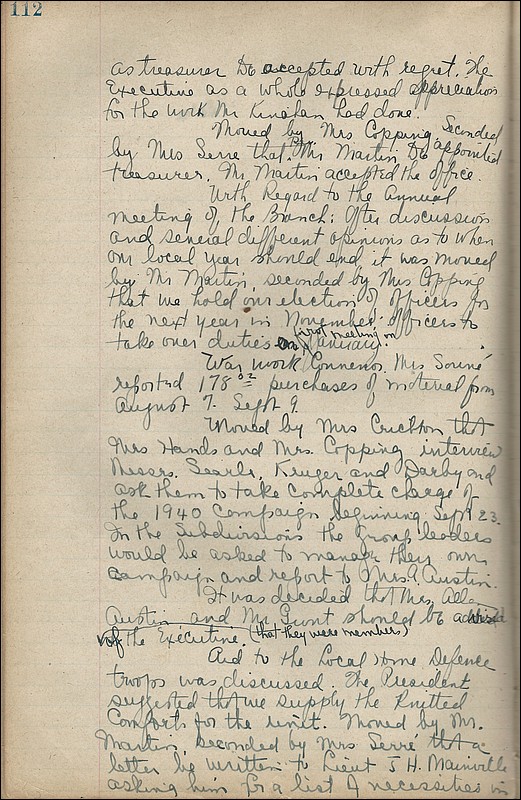 112
as treasurer be accepted with regret. The
Executive as a whole expressed appreciation
for the work Mr Kinahan had done.
Moved by Mrs Copping, Seconded
by Mrs Serre that Mr Martin, be appointed
treasurer. Mr Martin accepted the office.
With Regard to the Annual
meeting of the Branch: After discussion
and several different opinions as to when
our local year should end it was moved
by Mr Martin, seconded by Mrs Copping
that we hold our election of officers for
the next year in November. officers to
take over duties first meeting in January.
War work Convenor. Mrs
reported 178 purchases of material from
August 7. Sept 9.
Moved by Mrs Erickson that
Mrs Hands and Mrs. Copping interview
Messrs. Searle, Kruger and Darby and
ask them to take complete charge of
the 1940 Campaign beginning Sept 23.
In the Subdivisions the group leaders
would be asked to manage they own
campaign and report to Mrs A Austin.
It was decided that Mrs. Alla
Austin and Mr Gunt should be advised
of the Executive. (that they were members)
Aid to the Local Home Defence
troops was discussed. The President
suggested that we supply the Knitted
Comforts for the unit. Moved by Mr.
Martin, seconded by Mrs Serré that a
letter be written to Lieut J. H. Mainville
asking him for a list of necessities in